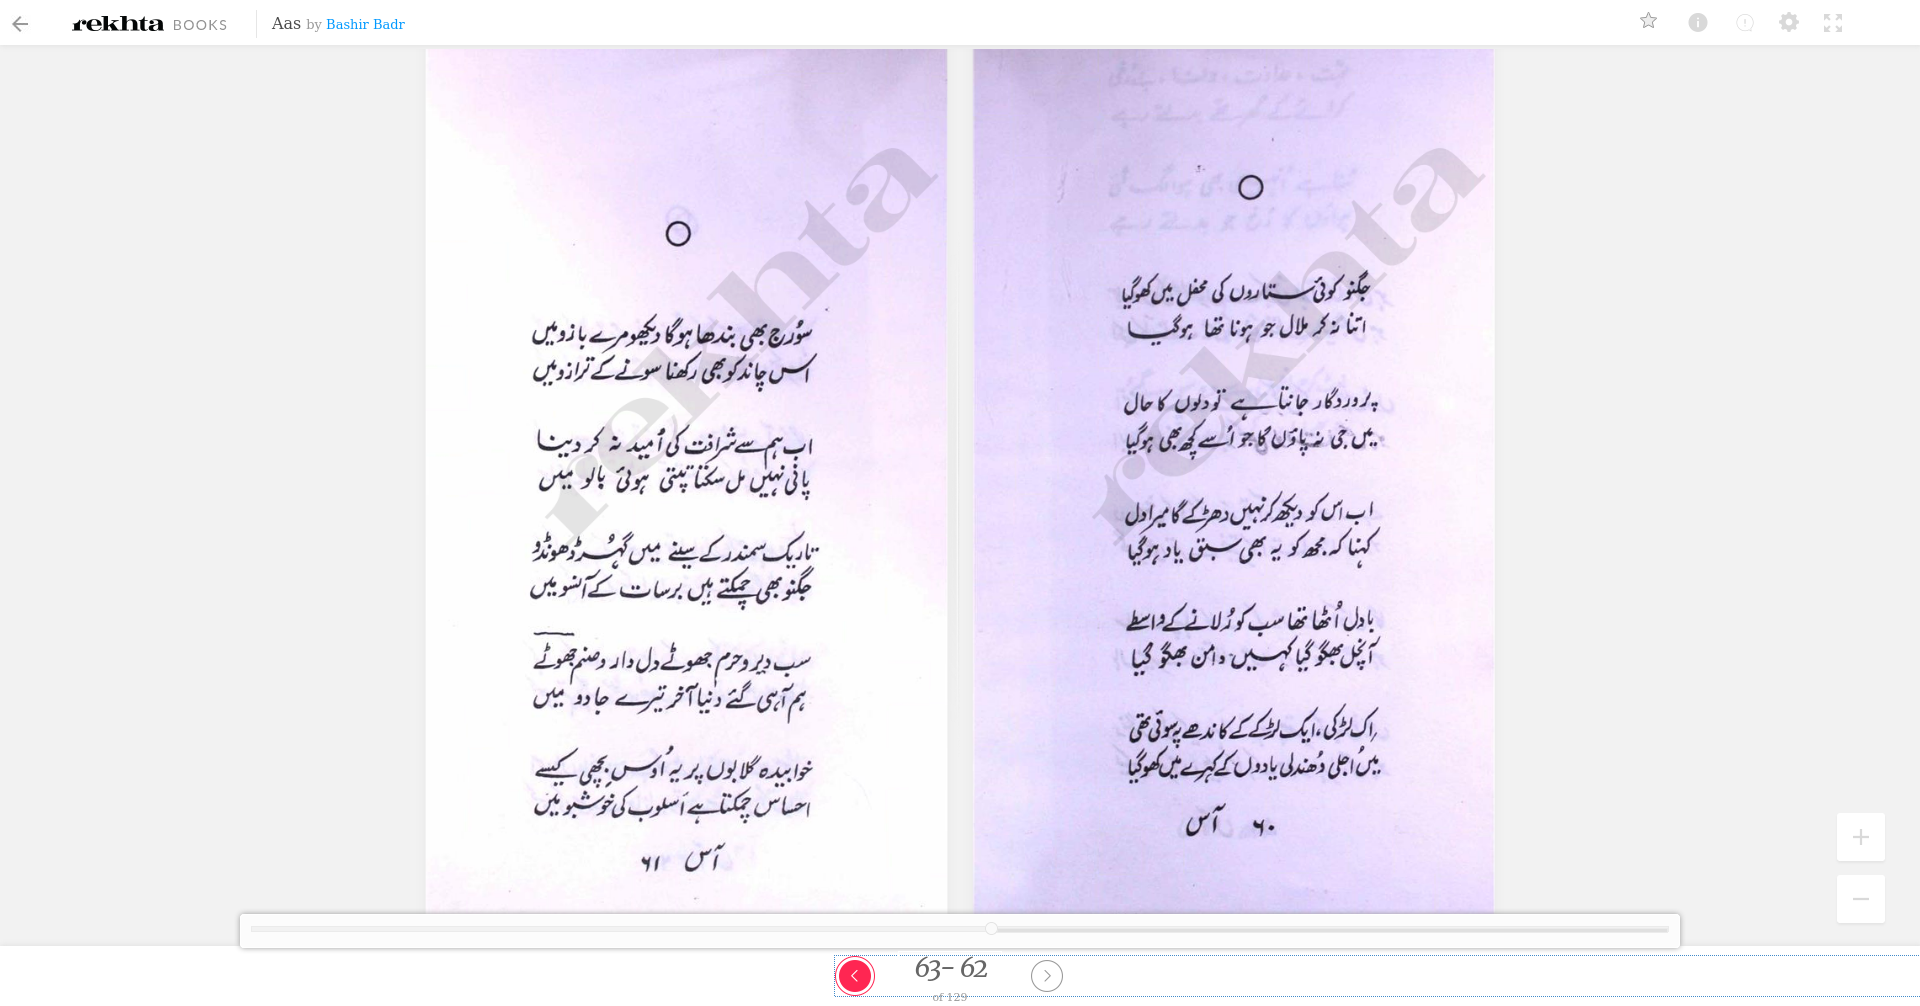 rekhta BOOKS Aas by Bashir Badr
rekhta
جگنو کوئی ستاروں کی محفل میں کھو گیا
اتنا نہ کر ملال جو ہونا تھا ہو گیا
پروردگار جانتا ہے تو دلوں کا حال
میں جی نہ پاؤں گا جو اُسے کچھ بھی ہو گیا
اب اس کو دیکھ کر نہیں دھڑکے گا میرا دل
کہنا کہ مجھ کو یہ بھی سبق یاد ہو گیا
بادل اُٹھا تھا سب کو رُلانے کے واسطے
آنچل بھگو گیا کہیں دامن بھگو گیا
اِک لڑکی، ایک لڑکے کے کاندھے پہ سوئی تھی
میں اُجلی دُھندلی یادوں کے کہرے میں کھو گیا
۶۰ آس
rekhta
سُورج بھی بندھا ہوگا دیکھو مرے بازو میں
اس چاند کو بھی رکھنا سونے کے ترازو میں
اب ہم سے شرافت کی اُمید نہ کر دینا
پانی نہیں مل سکتا تپتی ہوئی بالو میں
تاریک سمندر کے سینے میں گہُر ڈھونڈو
جگنو بھی چمکتے ہیں برسات کے آنسو میں
سب دیر و حرم جھوٹے دل دار و صنم جھوٹے
ہم آ ہی گئے دنیا آخر تیرے جادو میں
خوابیدہ گلابوں پر یہ اُوس بچھی کیسے
احساس چمکتا ہے اسلوب کی خوشبو میں
آس ۶۱
63- 62
of 129